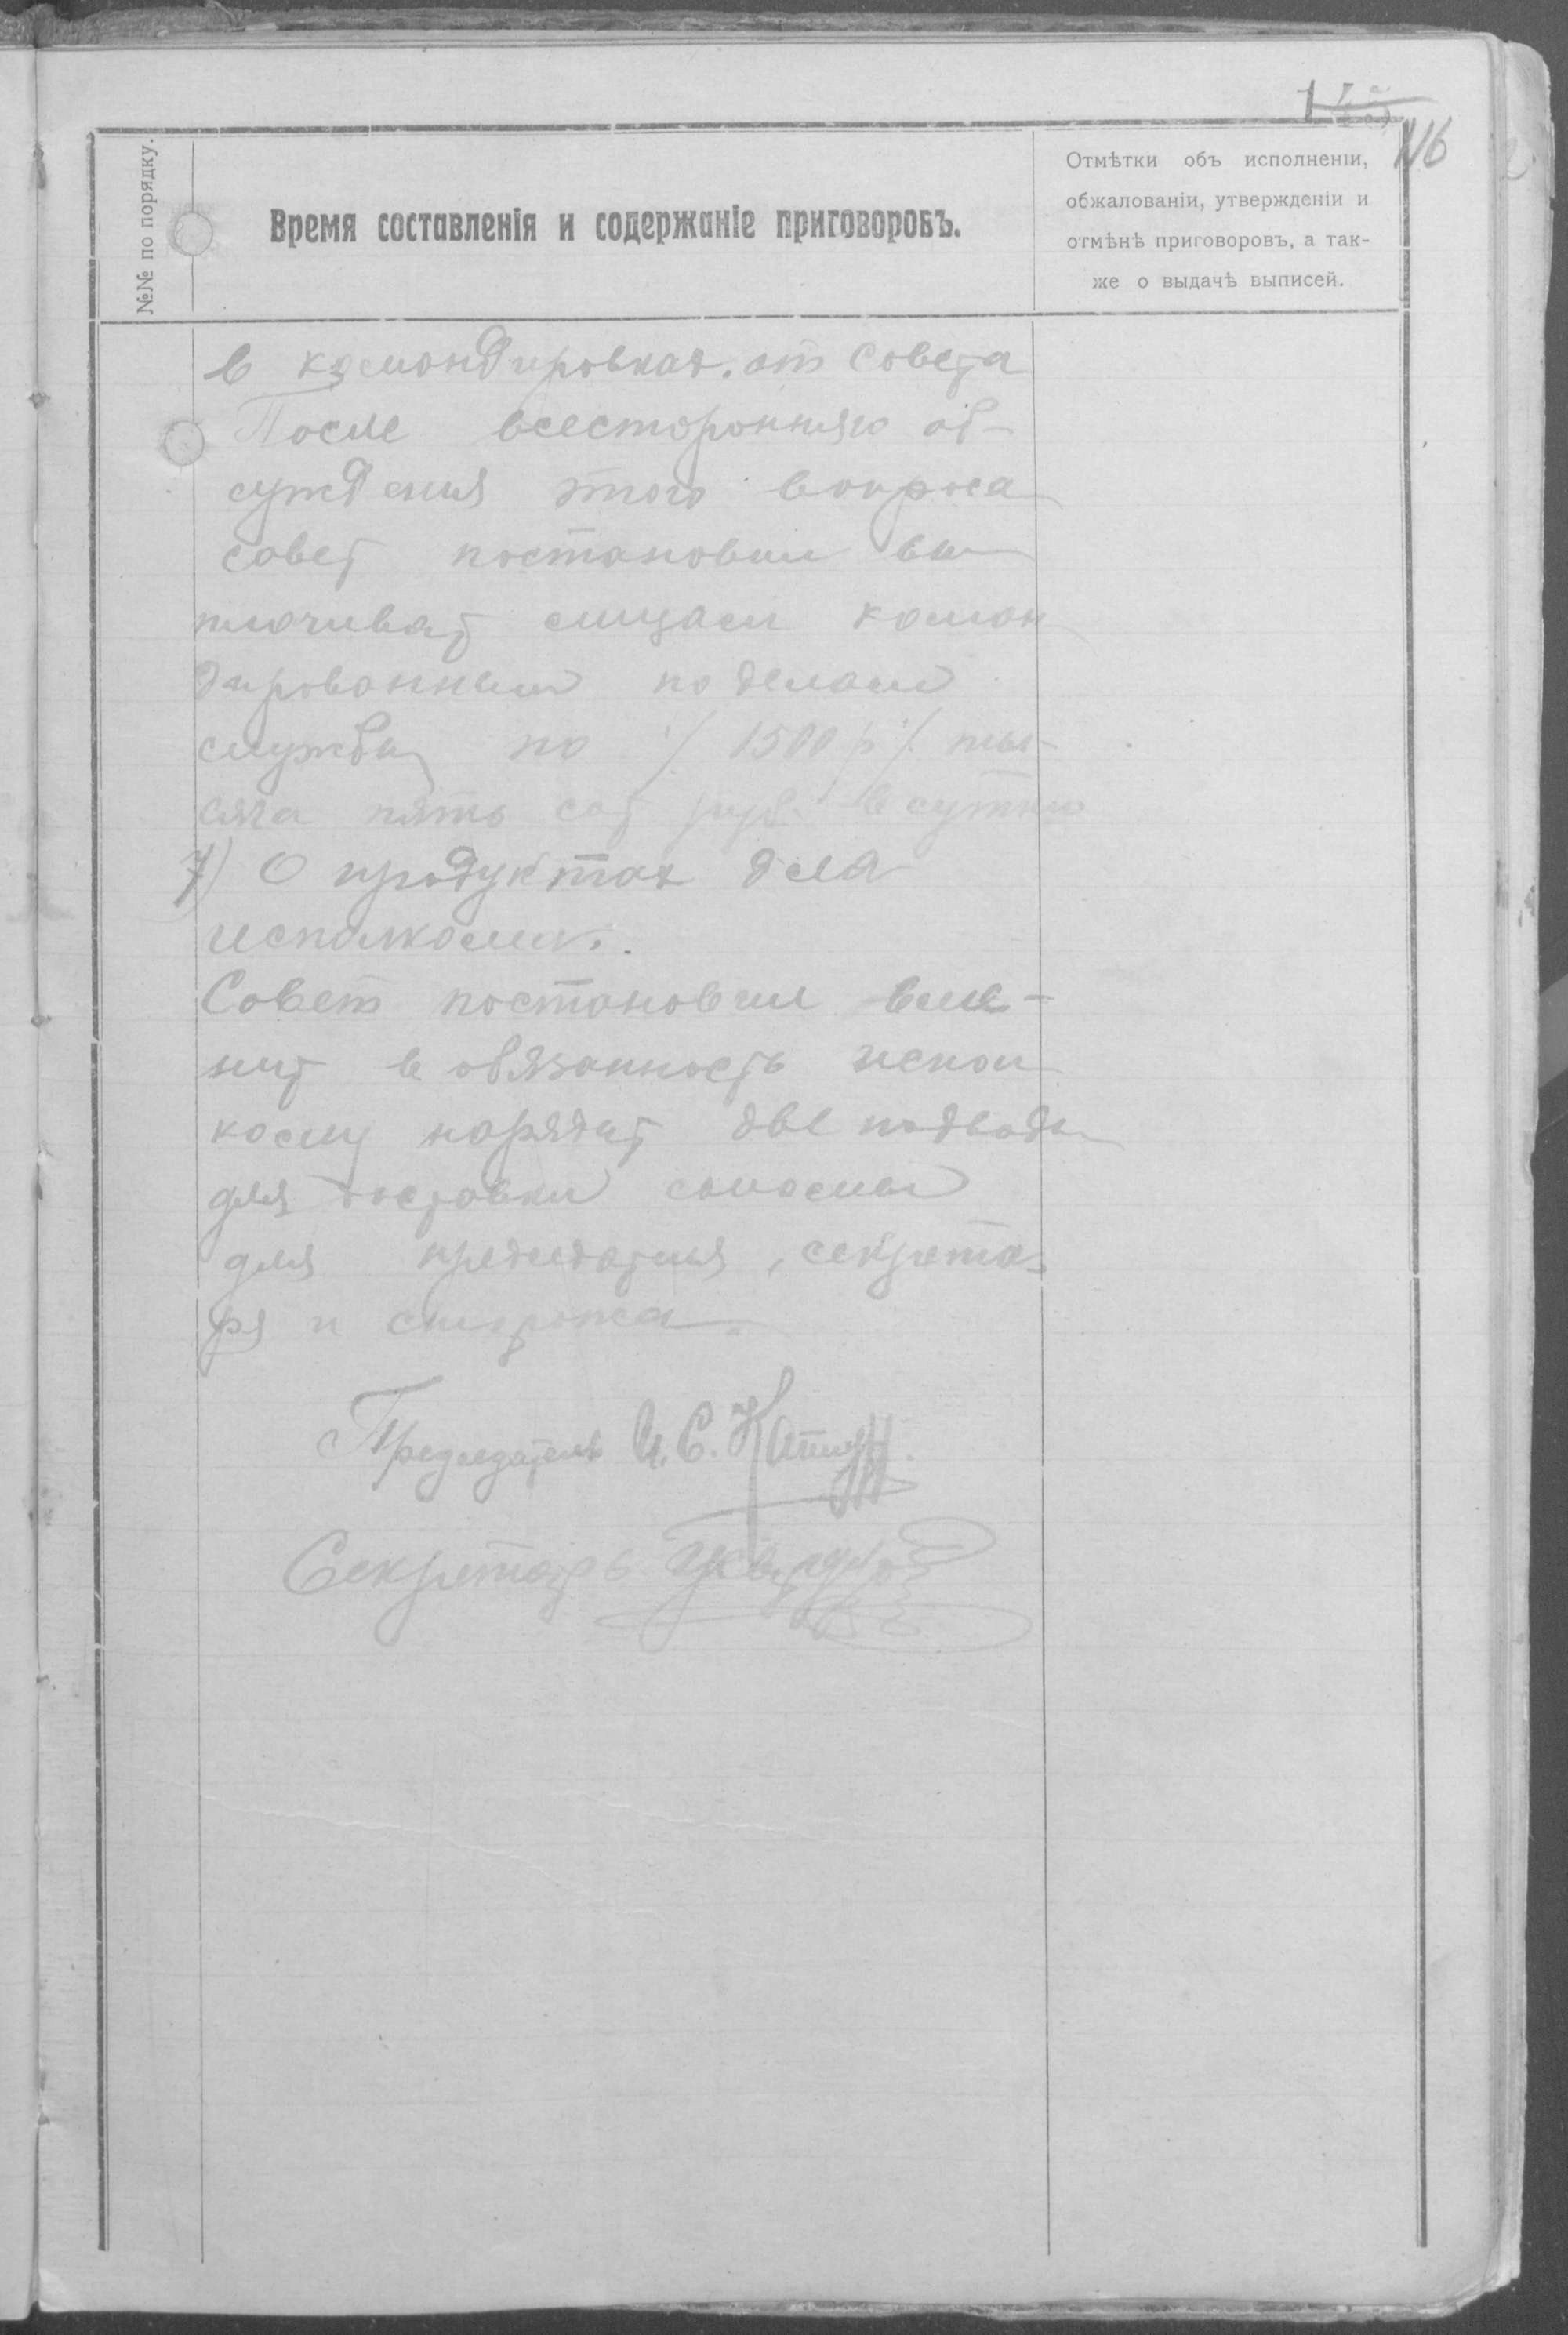 116
№№ по порядку.
Время составленія и содержаніе приговоровъ.
Отмѣтки объ исполненіи,
обжалованіи, утвержденіи и
отмѣнѣ приговоровъ, а так-
же о выдачѣ выписей.
в командировках. от Совета
После всесторонняго об-
суждения этого вопроса
совет постановил вы
плочиват лицам коман
дированным по делам
службы по /. 1500 р /. ты-
сяча пять сот руб. в сутки
7) О продуктах для
исполкома.
Совет постановил вме-
нит в обязанность испол
кому нарядит две подводы
для доставки соломы
для председателя, секрета-
ря и сторожа.
Председатель И. С.
Секретарь